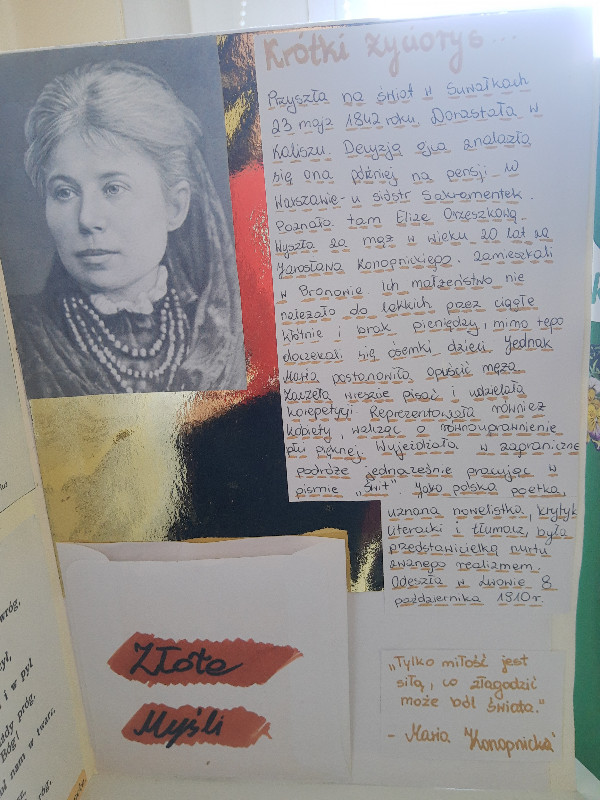 Krótki życiorys...
Przyszła na świat w Suwałkach
23 maja 1842 roku. Dorastała w
Kaliszu. Decyzją ojca znalazła
się ona później na pensji w
Warszawie - u sióstr Sakramentek.
Poznała tam Elizę Orzeszkową.
Wyszła za mąż w wieku 20 lat za
Jarosława Konopnickiego. Zamieszkali
w Bronowie. Ich małżeństwo nie
należało do lekkich przez ciągłe
kłótnie i brak pieniędzy, mimo tego
doczekali się ósemki dzieci. Jednak
Maria postanowiła opuścić męża.
Zaczęła wiersze pisać i udzielała
korepetycji. Reprezentowała również
kobiety, walcząc o równouprawnienie
płci pięknej. Wyjeżdżała w zagraniczne
podróże jednocześnie pracując w
piśmie „Świt". Jako polska poetka,
uznana nowelistka, krytyk
literacki i tłumacz, była
przedstawicielką nurtu
zwanego realizmem.
Odeszła w Lwowie 8
października 1810r.
Złote
Myśli
„Tylko miłość jest
siłą, co złagodzić
może ból świata."
- Maria Konopnicka
wróg,
i w pył
próg.
Bóg!
nam w twarz,